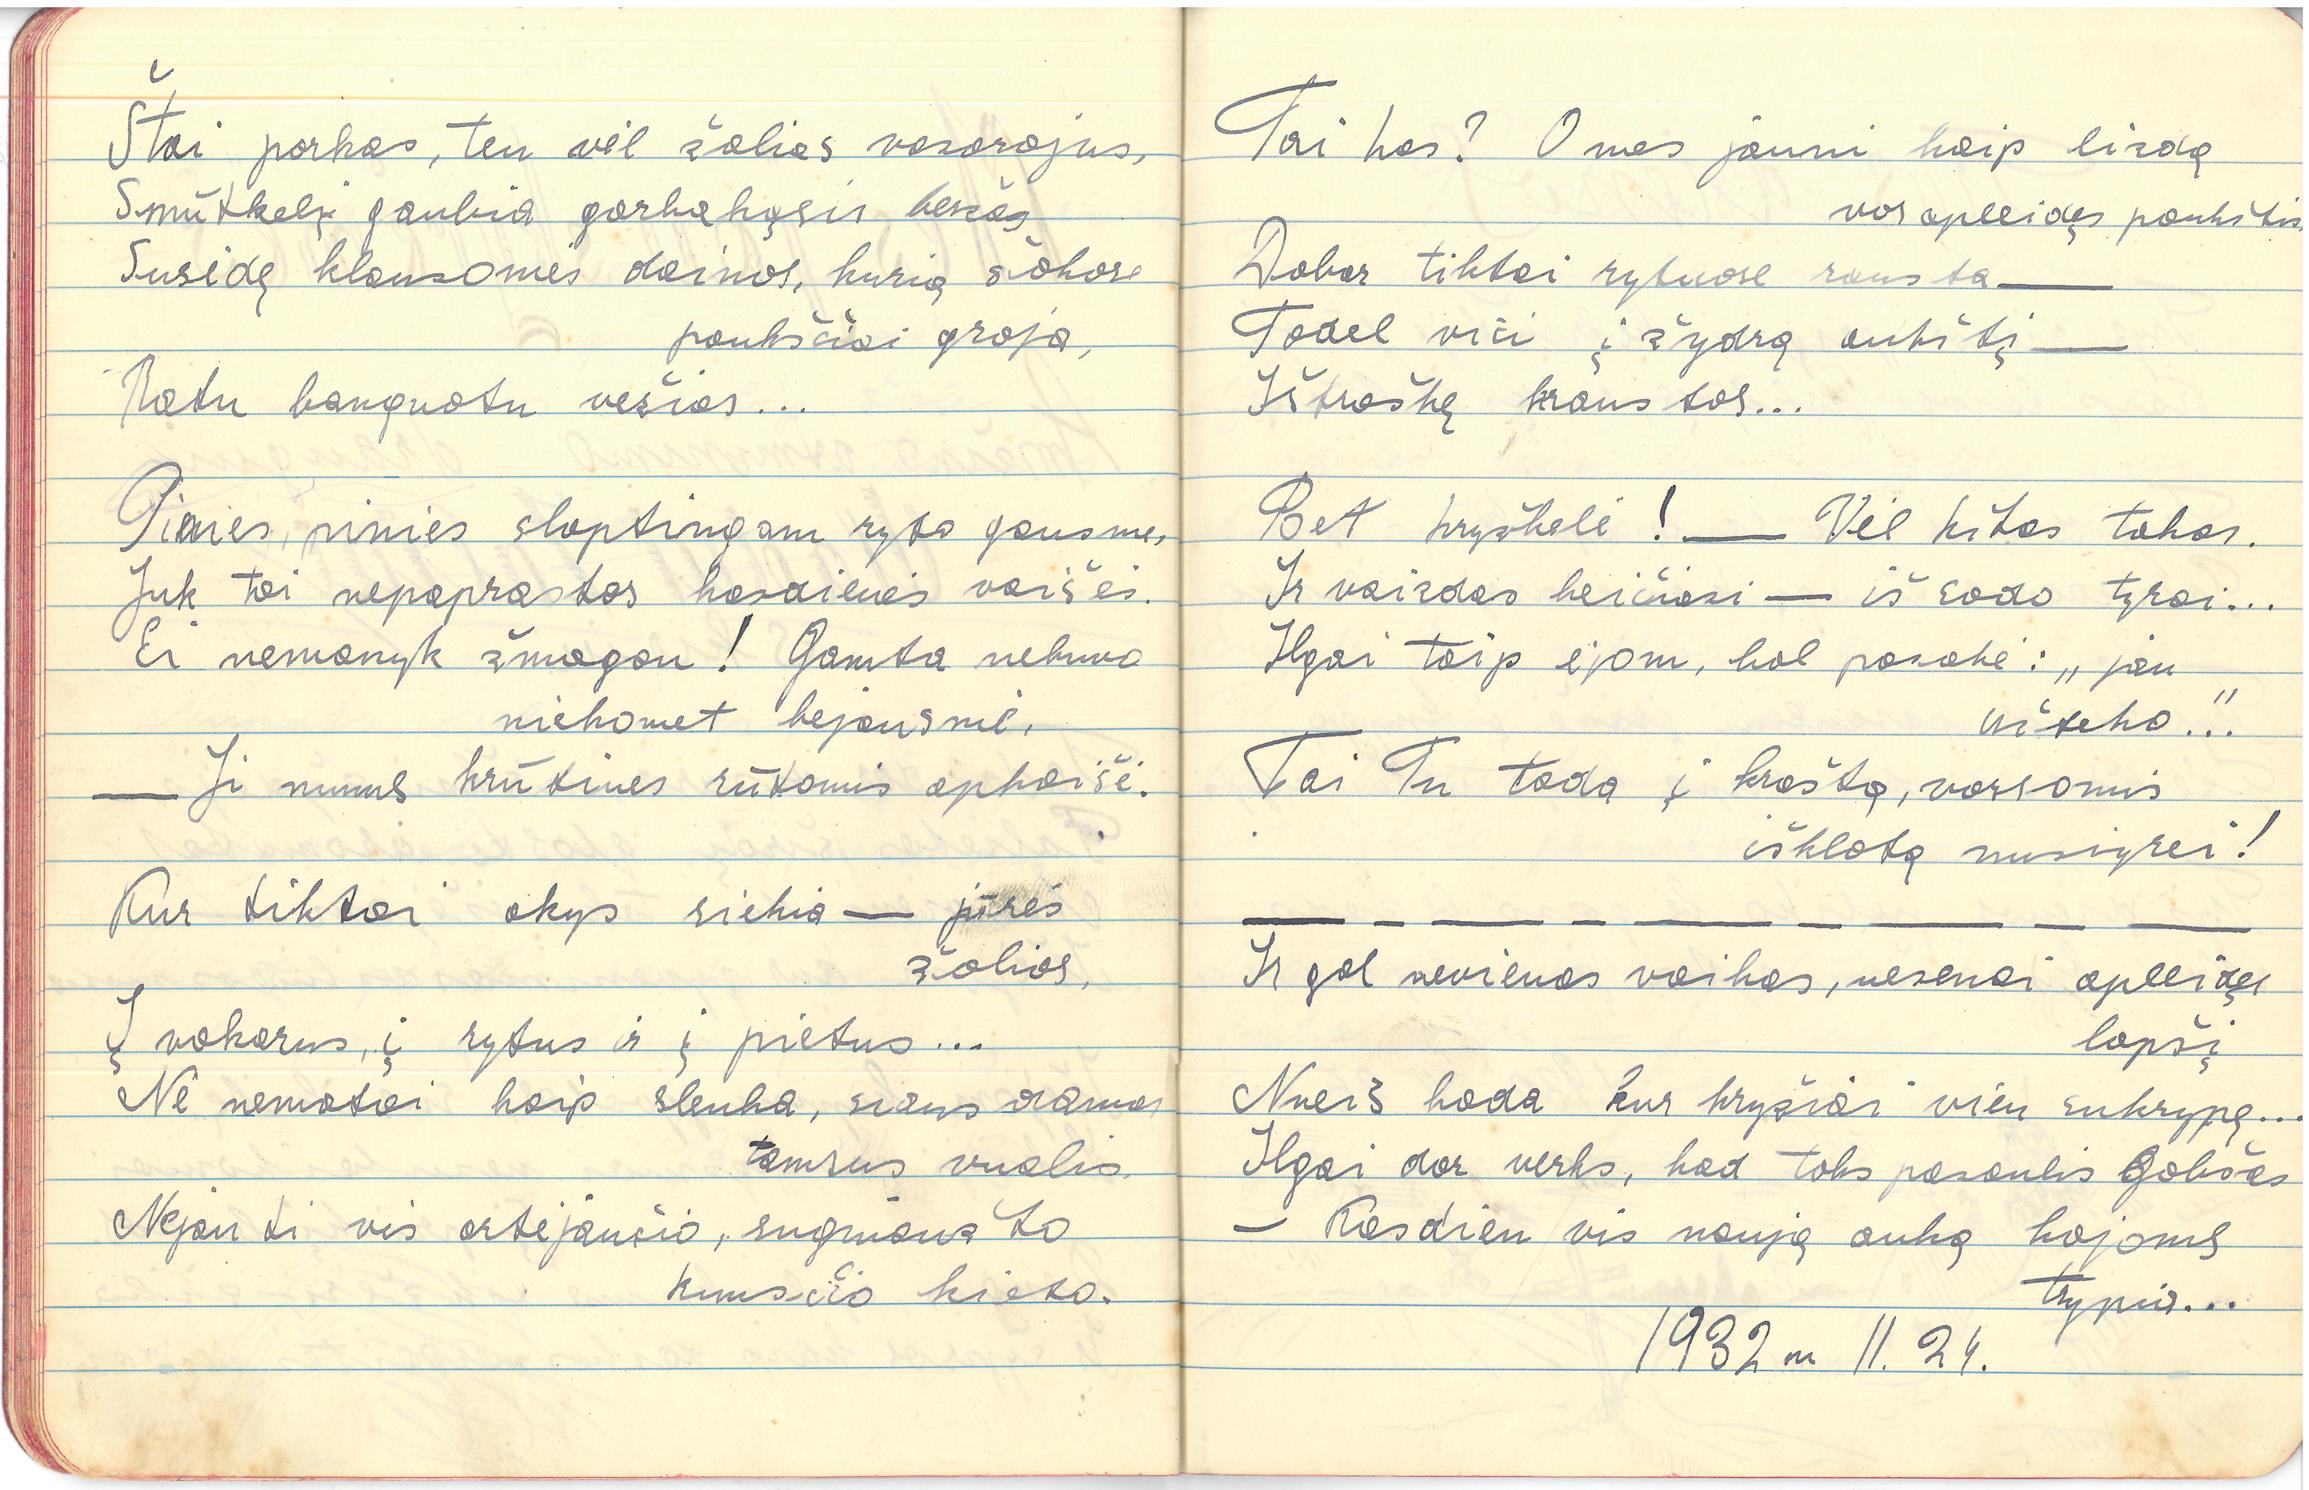 Štai parkas, ten vėl žalias vasarojus,
Smūtkelį gaubia garbakąsis beržas
Susėdę klausomės dainos, kurią šakose
paukščiai groja,
Ratu banguotu vežias...
Pinies, pinies slaptingam ryto gausme,
Juk tai nepaprastos kasdienės vaišės.
Ei nemanyk žmogau! Gamta nebuvo
niekomet bejausmė,
— Ji mums krūtines rūtomis apkaišė.
Kur tiktai akys siekia — jūrės
žalios,
Į vakarus, į rytus ir į pietus...
Nė nematai kaip slenka,
tamsus vualis
Nejauti vis artėjančio, sugniaužto
kumščio kieto.
Tai kas? O mes jauni kaip lizdą
vos apleidęs paukštis,
Dabar tiktai rytuose rausta —
Todėl visi į žydrą aukštį —
Ištroškę kraustos...
Bet kryžkelė! — Vėl kitas takas.
Ir vaizdas keičiasi — iš sodo tyrai...
Ilgai taip ėjom, kol pasakė: „jau
užteko..."
Tai Tu tada į kraštą, varsomis
išklotą nusiyrei!
Ir gal nevienas vaikas, nesenai apleidęs
lopšį
Nueiš kada kur kryžiai vien sukrypę...
Ilgai dar verks, kad toks pasaulis Gobšas
— Kasdien vis naują auką kojoms
trypia...
1932 m 11. 24.